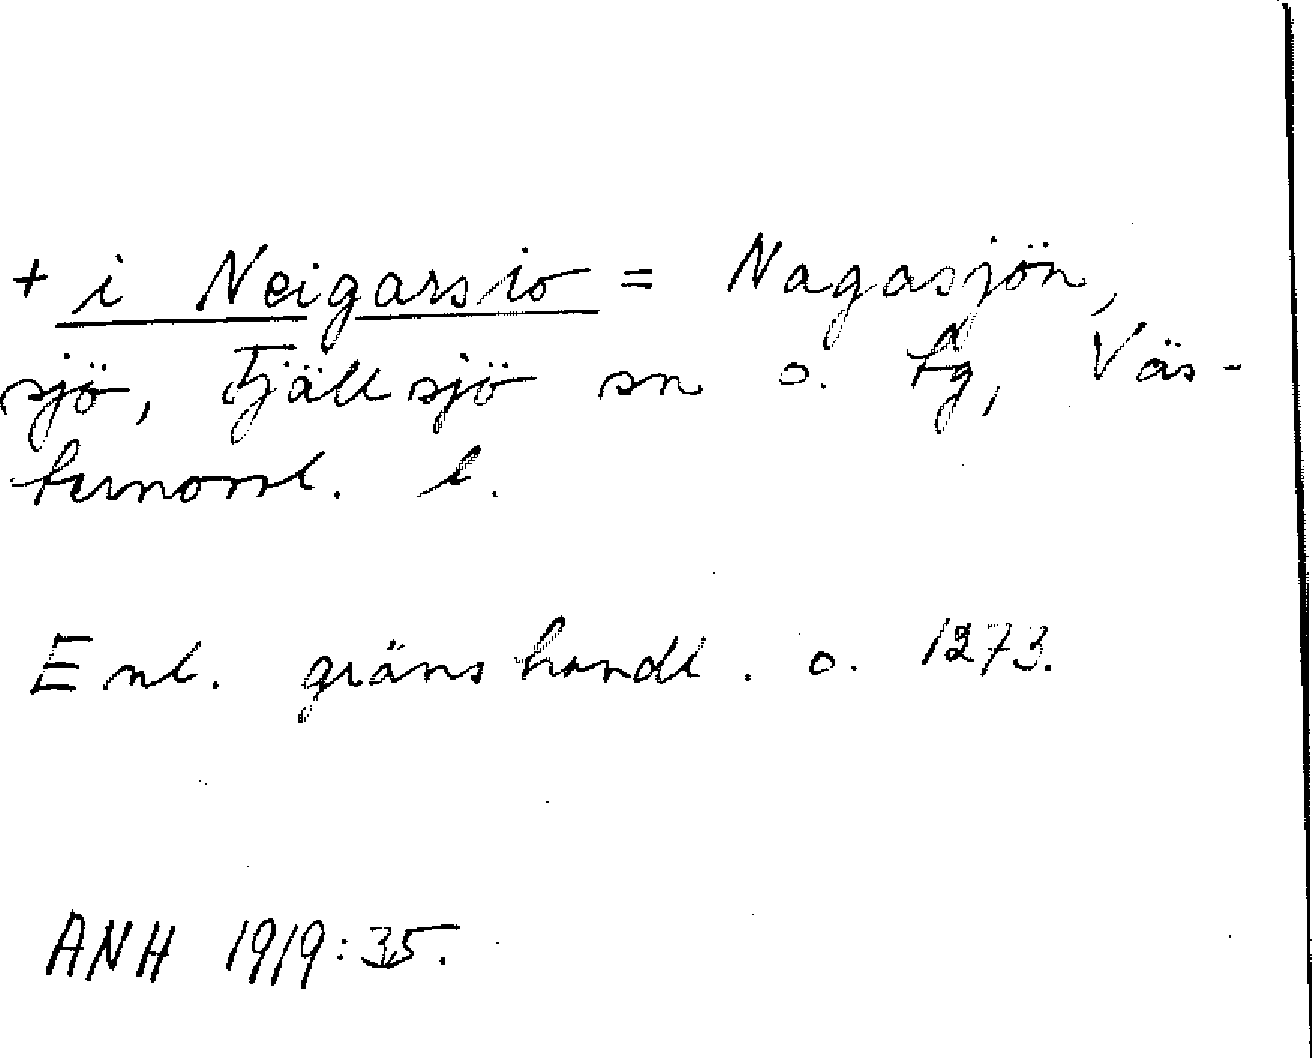 + i Neigarsio = Nagasjön,
sjö, Fjällsjö sn o. tg, Väs-
ternorrl. l.
Enl. gränshandl. o. 1273.
ANH 1919:35.